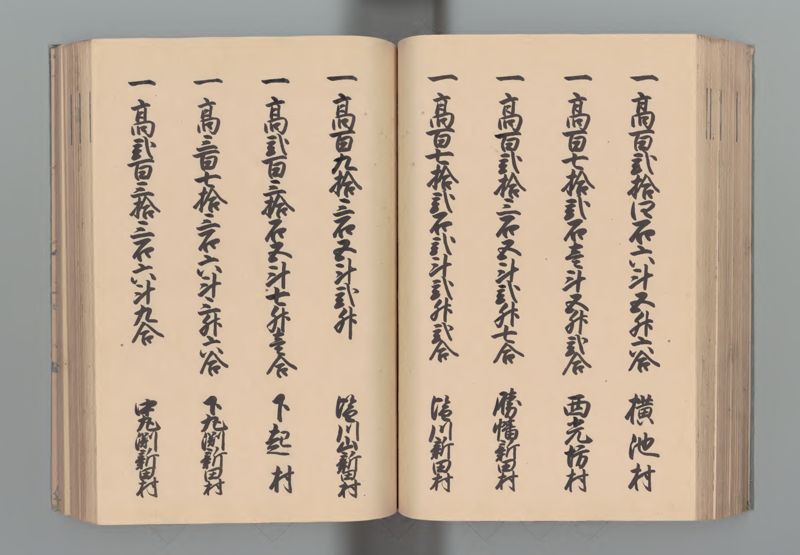 一 高百弐拾四石六斗五升六合 横池村
一 高百七拾弐石壱斗五升弐合 西光坊村
一 高百弐拾三石五斗弐升七合 勝幡新田村
一 高百七拾弐石弐斗弐升弐合 川新田村
一 高百九拾三石五斗弐升 川山新田村
一 高弐百三拾石五斗七升壱合 下起村
一 高三百七拾三石六斗三升六合 下丸渕新田村
一 高弐百三拾三石六斗九合 中丸渕新田村